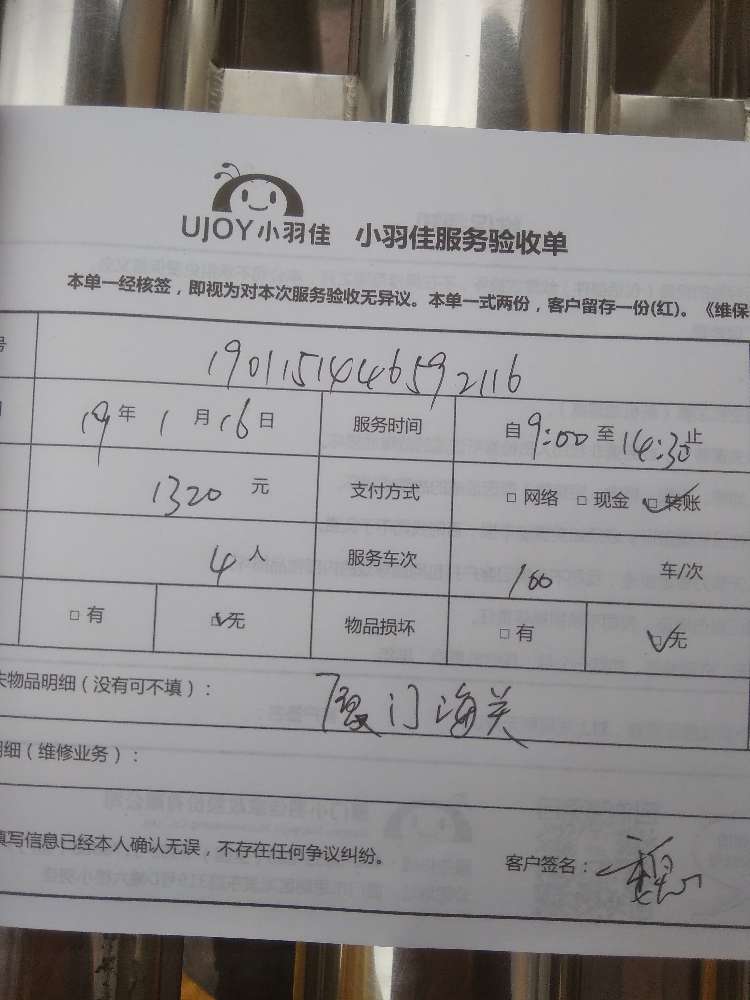 UJOY小羽佳 小羽佳服务验收单
本单一经核签，即视为对本次服务验收无异议。本单一式两份，客户留存一份(红)。《维保
号 1901151446592116
19年1月16日 服务时间 自9:00至14:30止
1320元 支付方式 □网络 □现金 ☑转账
4人 服务车次 100 车/次
□有 ☑无 物品损坏 □有 ☑无
失物品明细（没有可不填）： 厦门海关
明细（维修业务）：
填写信息已经本人确认无误，不存在任何争议纠纷。 客户签名：